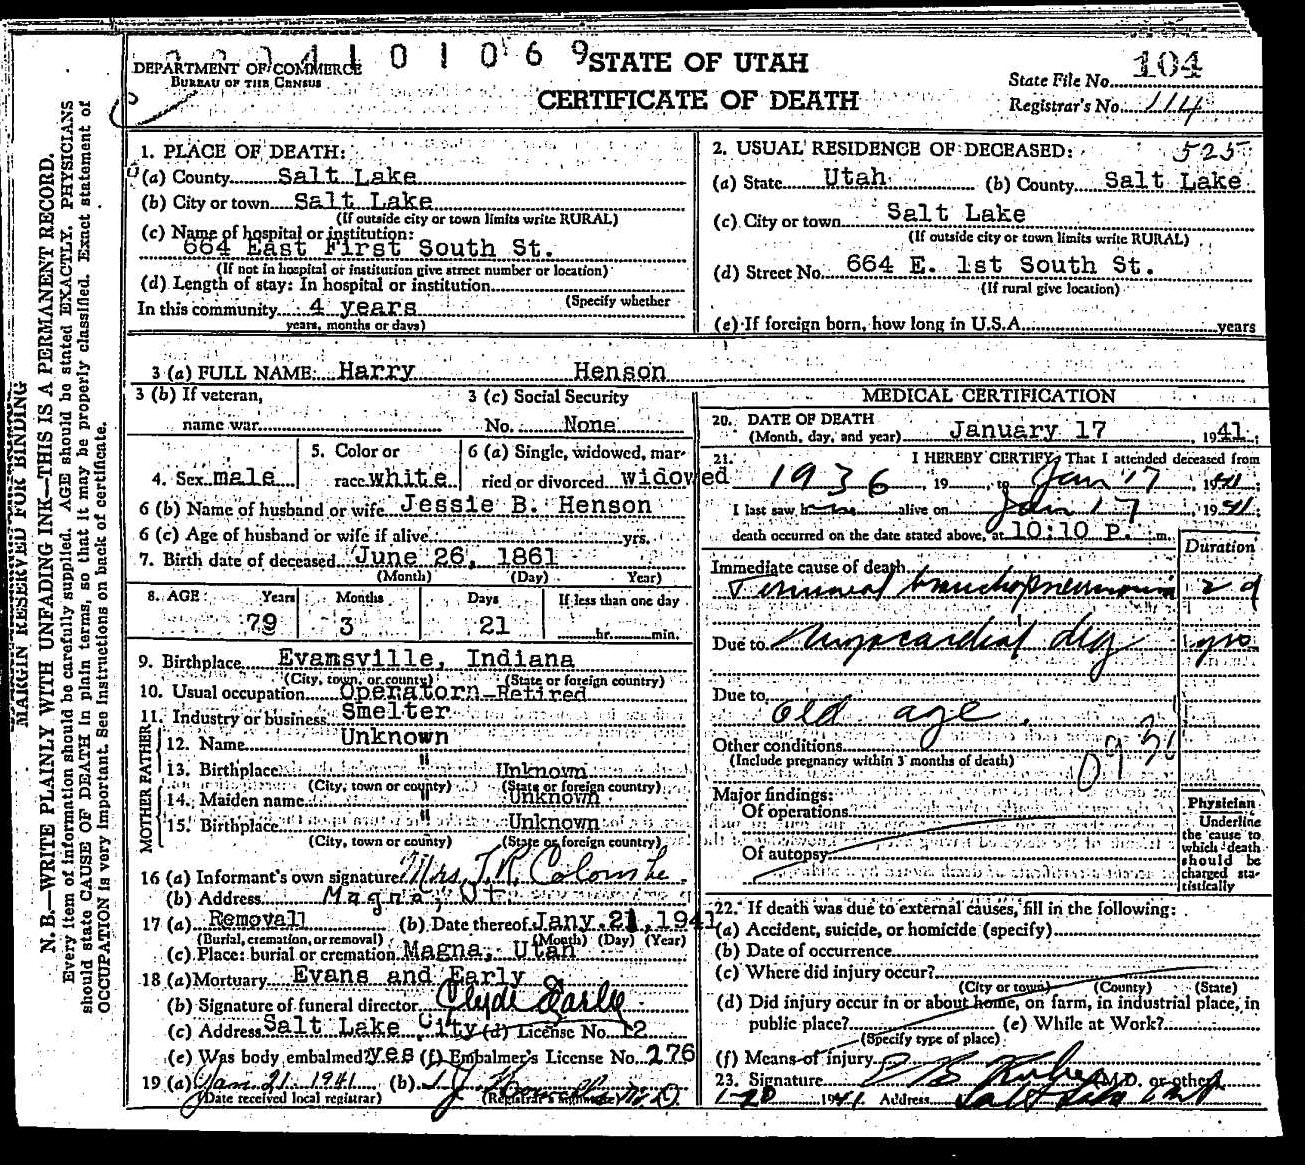 0 1 0 6 9
STATE OF UTAH
CERTIFICATE OF DEATH
DEPARTMENT OF COMMERCE
BUREAU OF THE CENSUS
State File No. 104
Registrar's No. 114
MARGIN RESERVED FOR BINDING
N. B.—WRITE PLAINLY WITH UNFADING INK—THIS IS A PERMANENT RECORD.
Every item of information should be carefully supplied. AGE should be stated EXACTLY. PHYSICIANS
should state CAUSE OF DEATH in plain terms, so that it may be properly classified. Exact statement of
OCCUPATION is very important. See instructions on back of certificate.
1. PLACE OF DEATH:
(a) County Salt Lake
(b) City or town Salt Lake
(If outside city or town limits write RURAL)
(c) Name of hospital or institution:
664 East First South St.
(If not in hospital or institution give street number or location)
(d) Length of stay: In hospital or institution
(Specify whether
In this community 4 years
years, months or days)
2. USUAL RESIDENCE OF DECEASED: 525
(a) State Utah (b) County Salt Lake
(c) City or town Salt Lake
(If outside city or town limits write RURAL)
(d) Street No. 664 E. 1st South St.
(If rural give location)
(e) If foreign born, how long in U.S.A. years
3 (a) FULL NAME: Harry Henson
3 (b) If veteran,
name war
3 (c) Social Security
No. None
4. Sex male
5. Color or
race white
6 (a) Single, widowed, mar-
ried or divorced widowed
6 (b) Name of husband or wife Jessie B. Henson
6 (c) Age of husband or wife if alive yrs.
7. Birth date of deceased June 26, 1861
(Month) (Day) Year)
8. AGE: Years Months Days If less than one day
79 3 21 hr. min.
9. Birthplace Evamsville, Indiana
(City, town, or county) (State or foreign country)
10. Usual occupation Operatorn-Retired
11. Industry or business Smelter
FATHER
12. Name Unknown
13. Birthplace " Unknown
(City, town or county) (State or foreign country)
MOTHER
14. Maiden name " Unknown
15. Birthplace " Unknown
(City, town or county) (State or foreign country)
16 (a) Informant's own signature Mrs. J. R. Colombe
(b) Address Magna, Ut
17 (a) Removall (b) Date thereof Jany. 21, 1941
(Burial, cremation, or removal) (Month) (Day) (Year)
(c) Place: burial or cremation Magna, Utah
18 (a) Mortuary Evans and Early
(b) Signature of funeral director Clyde Early
(c) Address Salt Lake City (d) License No. 12
(e) Was body embalmed? yes (f) Embalmer's License No. 276
19 (a) Jan. 21 1941 (b) M.D.
(Date received local registrar) (Registrar's signature)
MEDICAL CERTIFICATION
20. DATE OF DEATH
(Month, day, and year) January 17, 1941
21. I HEREBY CERTIFY, That I attended deceased from
1936, 19 , to Jan 17 1941
I last saw him alive on Jan 17, 1941
death occurred on the date stated above, at 10:10 P. m.
Duration
Immediate cause of death
Terminal bronchopneumonia 2 d
Due to Myocardial deg yrs
Due to
old age.
Other conditions
(Include pregnancy within 3 months of death)
Major findings:
Of operations
Of autopsy
Physician
Underline
the cause to
which death
should be
charged sta-
tistically
22. If death was due to external causes, fill in the following:
(a) Accident, suicide, or homicide (specify)
(b) Date of occurrence
(c) Where did injury occur?
(City or town) (County) (State)
(d) Did injury occur in or about home, on farm, in industrial place, in
public place? (e) While at Work?
(Specify type of place)
(f) Means of injury
23. Signature (M.D. or other)
1-20 1941 Address Salt Lake City